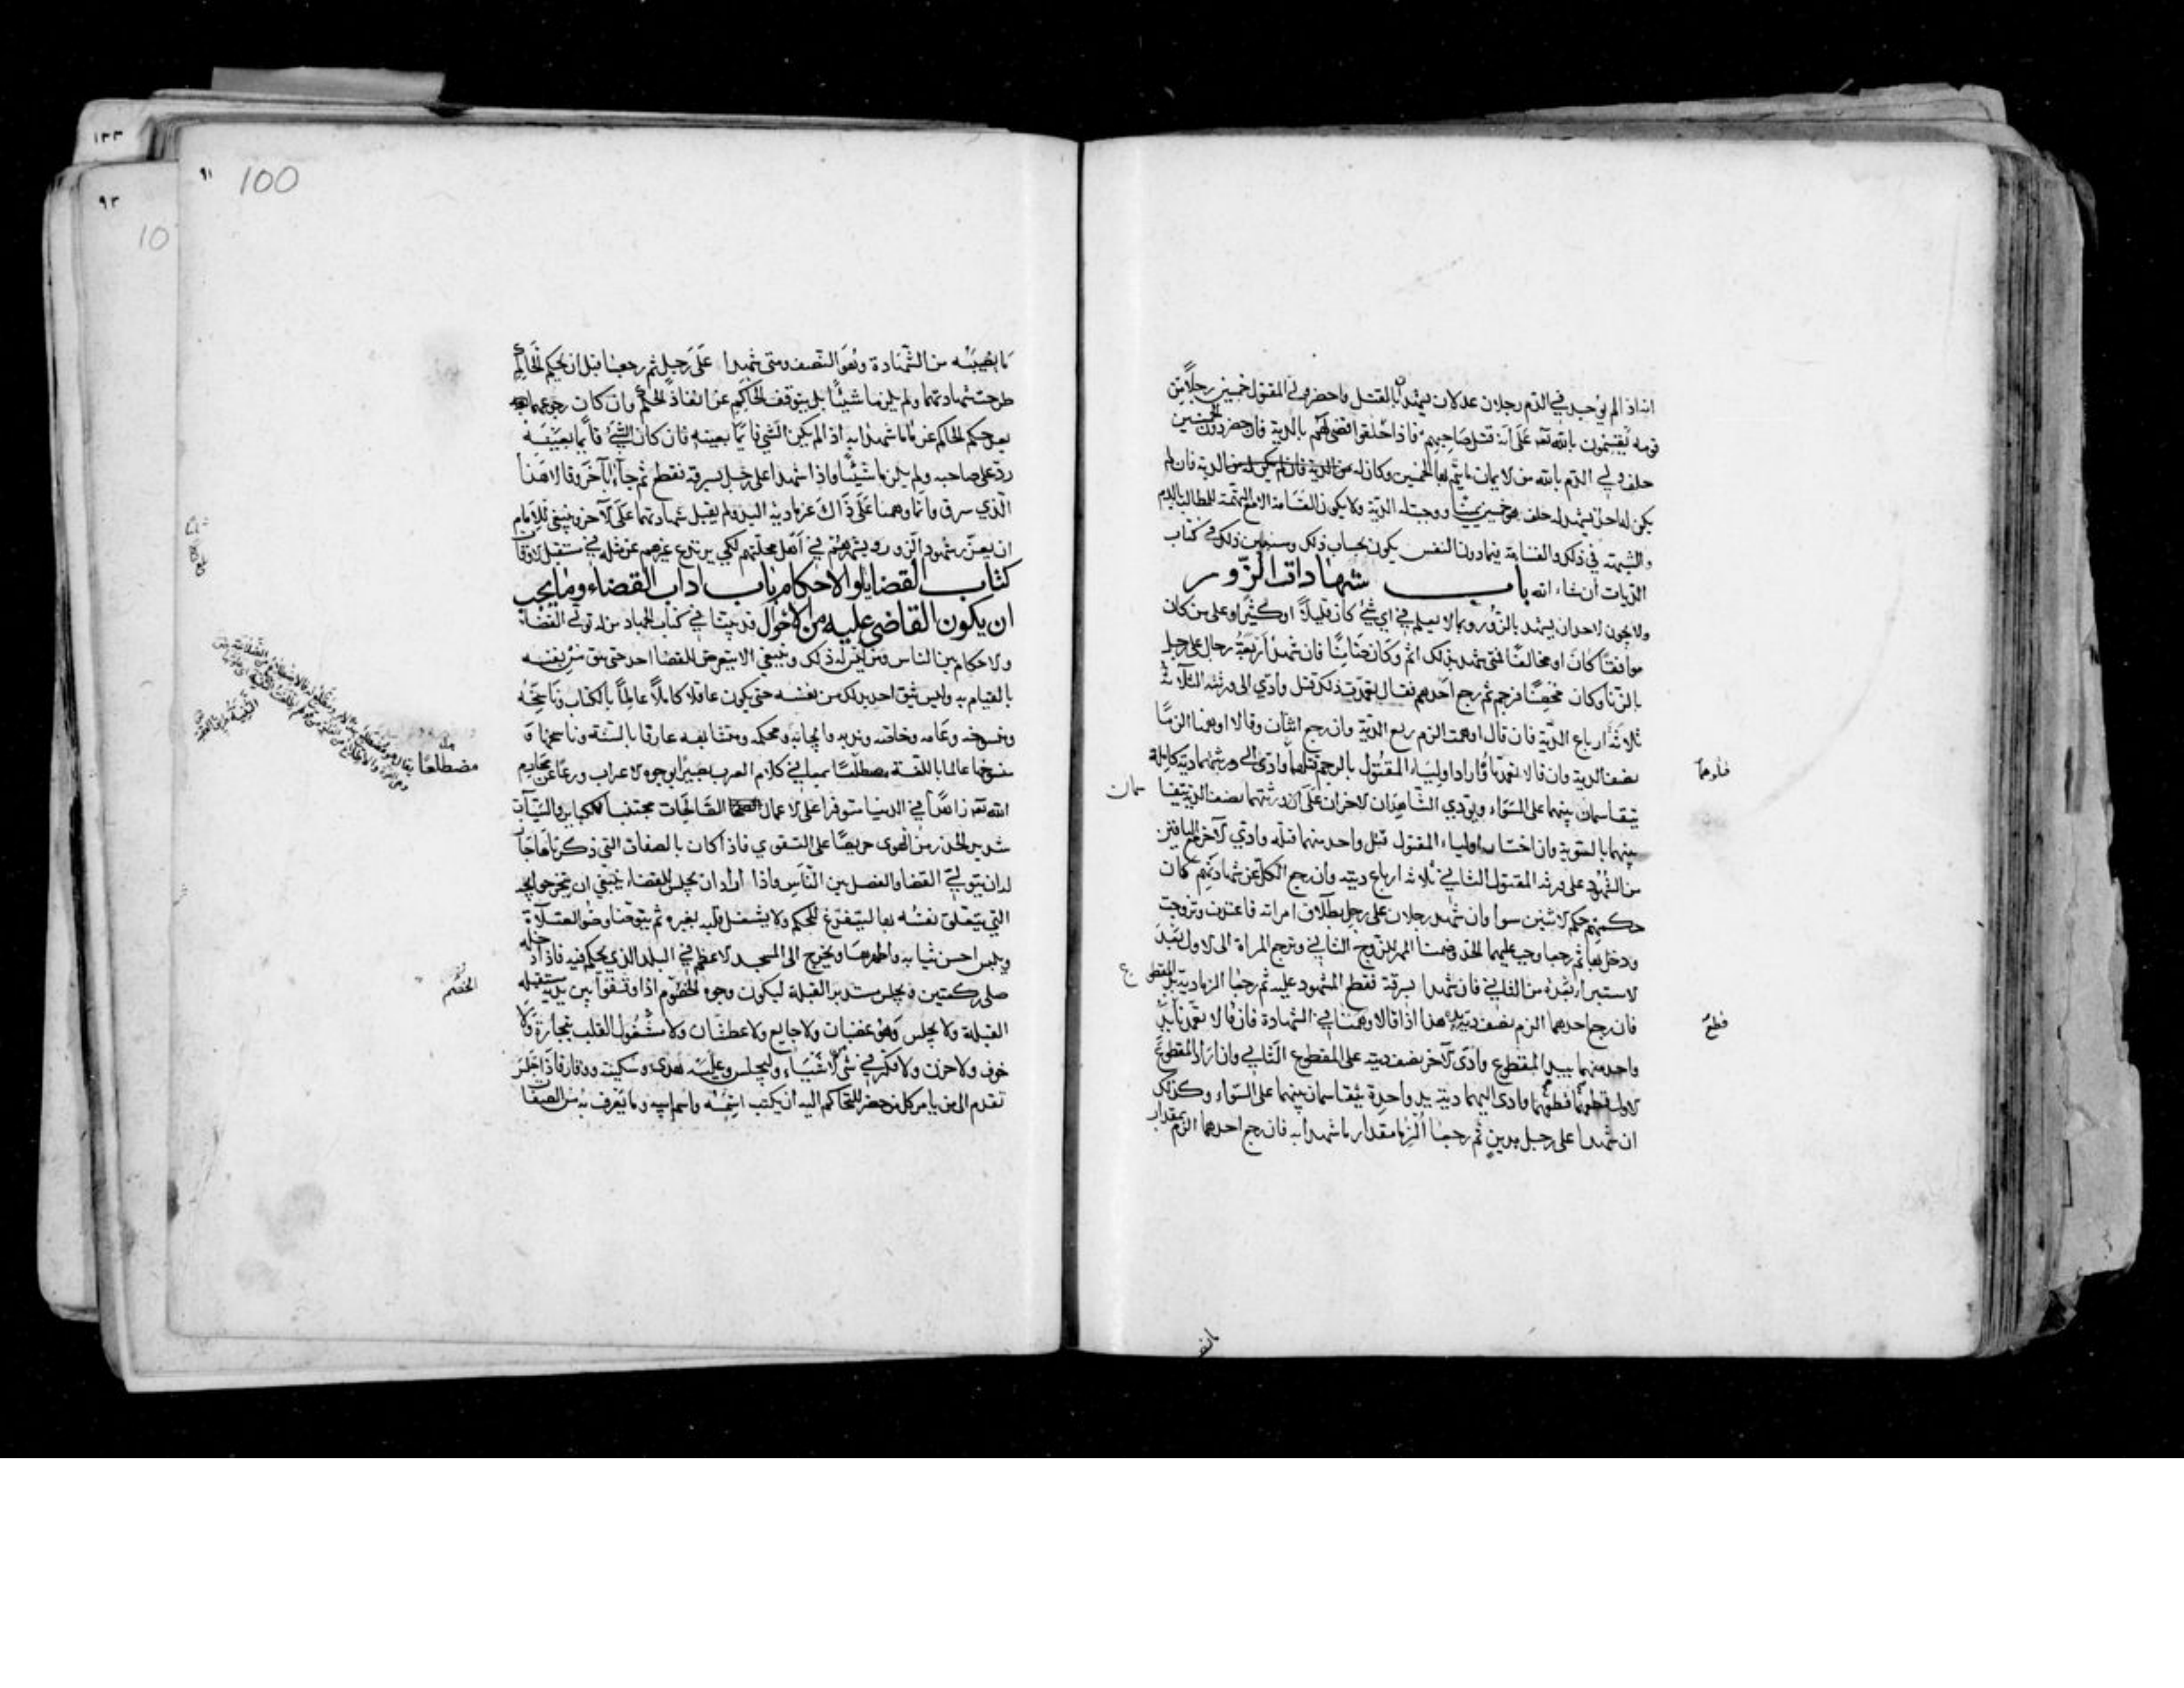 انه اذا لم يوجد في الدم رجلان عدلان يشهدان بالقتل واحضر ولي المقتول خمسين رجلا من
قومه يقسمون بالله تعـ على انه قتل صاحبهم فاذا حلفوا قضى لهم بالدية فان حضر دون الخمسين
حلف ولي الدم بالله من الايمان ما يتم بها الخمسين وكان له الدية فان لم
يكن له احد يشهد له حلف هو خمسين يمينا ووجبت له الدية ولا يكون القسامة الا مع التهمة للمطالب بالدم
والشبهة في ذلك والقسامة فيما دون النفس يكون بحساب ذلك وسنبين ذلك في كتاب
الديات ان شاء الله باب شهادات الزور
ولا يجوز لاحد ان يشهد بالزور وبما لا يعلم في اي شئ كان قليلا او كثيرا وعلى من كان
موافقا كان او مخالفا فمتى شهد بذلك اثم وكان ضامنا فان شهد اربعة رجال على رجل
بالزنا وكان محصنا فرجم ثم رجع احدهم فقال تعمدت ذلك قتل وادي الى ورثته الثلاثة
ثلاثة ارباع الدية فان قال اوهمت الزم ربع الدية وان رجع اثنان وقالا اوهمنا الزما
نصف الدية وان قالا تعمدنا فاراد اولياء المقتول بالرجم قتلهما وادى الى ورثتهما دية كاملة
يتقاسمان بينهما على السواء ويؤدي الشاهدان الاخران على ورثتهما نصف الدية يتقا
سمان
بينهما بالسوية وان اختار اولياء المقتول قتل واحد منهما قتله وادى الآخر مع الباقين
من الشهود على ورثة المقتول الثاني ثلاثة ارباع ديته وان رجع الكل عن شهادتهم كان
حكمهم حكم الاثنين سوا وان شهد رجلان على رجل بطلاق امراته فاعتدت وتزوجت
ودخل بها ثم رجعا وجب عليهما الحد وضمنا المهر للزوج الثاني وترجع المراة الى الاول بعد
الاستبراء من الثاني فان شهدا بسرقة فقطع المشهود عليه ثم رجعا الزما دية يد المقطوع
فان رجع احدهما الزم نصف دية يده هذا اذا قالا وهمنا في الشهادة فان قالا تعمدنا
واحد منهما بيد المقطوع وادى الآخر نصف ديته على المقطوع الثاني وان اراد المقطوع
الاول قطعهما قطعهما وادى اليهما دية يد واحدة يتقاسمان بينهما على السواء وكذلك
ان شهدا على رجل بدين ثم رجعا الزما مقدار ما شهدا به فان رجع احدهما الزم بمقدار
قطع
٩١
100
ما يصيبه من الشهادة وهو النصف ومتى شهدا على رجل ثم رجعا قبل ان يحكم الحاكم
طرحت شهادتهما ولم يلزما شيئا بل يتوقف الحاكم عن انفاذ الحكم وان كان رجوعهما
بعد حكم الحاكم غرما ما شهدا به اذا لم يكن الشي قائما بعينه فان كان الشئ قائما بعينه
رد على صاحبه ولم يلزما شيئا واذا شهدا على رجل بسرقة فقطع ثم جاءا بآخر وقالا هذا
الذي سرق وانما وهمنا على ذاك غرما دية اليد ولم يقبل شهادتهما على الآخر وينبغي للامام
ان يعزر شهود الزور ويشهرهم في اهل محلتهم لكي يرتدع غيرهم عن مثله في مستقبل الاوقات
كتاب القضايا والاحكام باب اداب القضاء وما يجب
ان يكون القاضي عليه من الاحوال قد بينا في كتاب الجهاد من له تولي القضاء
والاحكام بين الناس ومن ليس له ذلك وينبغي الا يتعرض للقضا احد حتى يثق من نفسه
بالقيام به وليس يثق احد بذلك من نفسه حتى يكون عاقلا كاملا عالما بالكتاب وناسخه
ومنسوخه وعامه وخاصه وندبه وايجابه ومحكمه ومتشابهه عارفا بالسنة وناسخها و
منسوخها عالما باللغة مضطلعا بمعاني كلام العرب بصيرا بوجوه الاعراب ورعا عن محارم
الله تعـ زاهدا في الدنيا متوفرا على الاعمال الصالحات مجتنبا للكباير والسيآت
شديد الحذر من الهوى حريصا على التقوي فاذا كان بالصفات التي ذكرناها جاز
له ان يتولي القضا والفصل بين الناس واذا اراد ان يجلس للقضاء ينبغي ان ينجز حوائجه
التي يتعلق نفسه بها ليتفرغ للحكم ولا يشتغل قلبه بغيره ثم يتوضا وضوء الصلاة
ويلبس احسن ثيابه واطهرها ويخرج الى المسجد الاعظم في البلد الذي يحكم فيه فاذا دخله
صلى ركعتين ويجلس مستدبر القبلة ليكون وجوه الخصوم اذا وقفوا بين يديه مستقبله
القبلة ولا يجلس وهو غضبان ولا جايع ولا عطشان ولا مشغول القلب بتجارة ولا
خوف ولا حزن ولا فكر في شئ من الاشياء وليجلس وعليه هدى وسكينة ووقار فاذا جلس
تقدم الى من يامر كل من حضر للتحاكم اليه ان يكتب اسمه واسم ابيه وما يعرف به من الصفات
مضطلعا
الخصم
٩٣
10
١٣٣